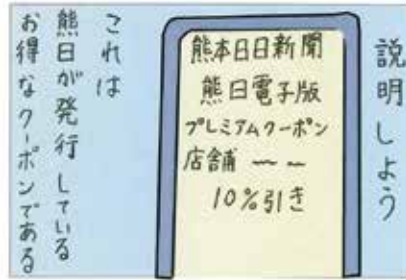 説明しよう
熊本日日新聞
熊日電子版
プレミアムクーポン
店舗 〜 〜
10%引き
これは
熊日が発行している
お得なクーポンである